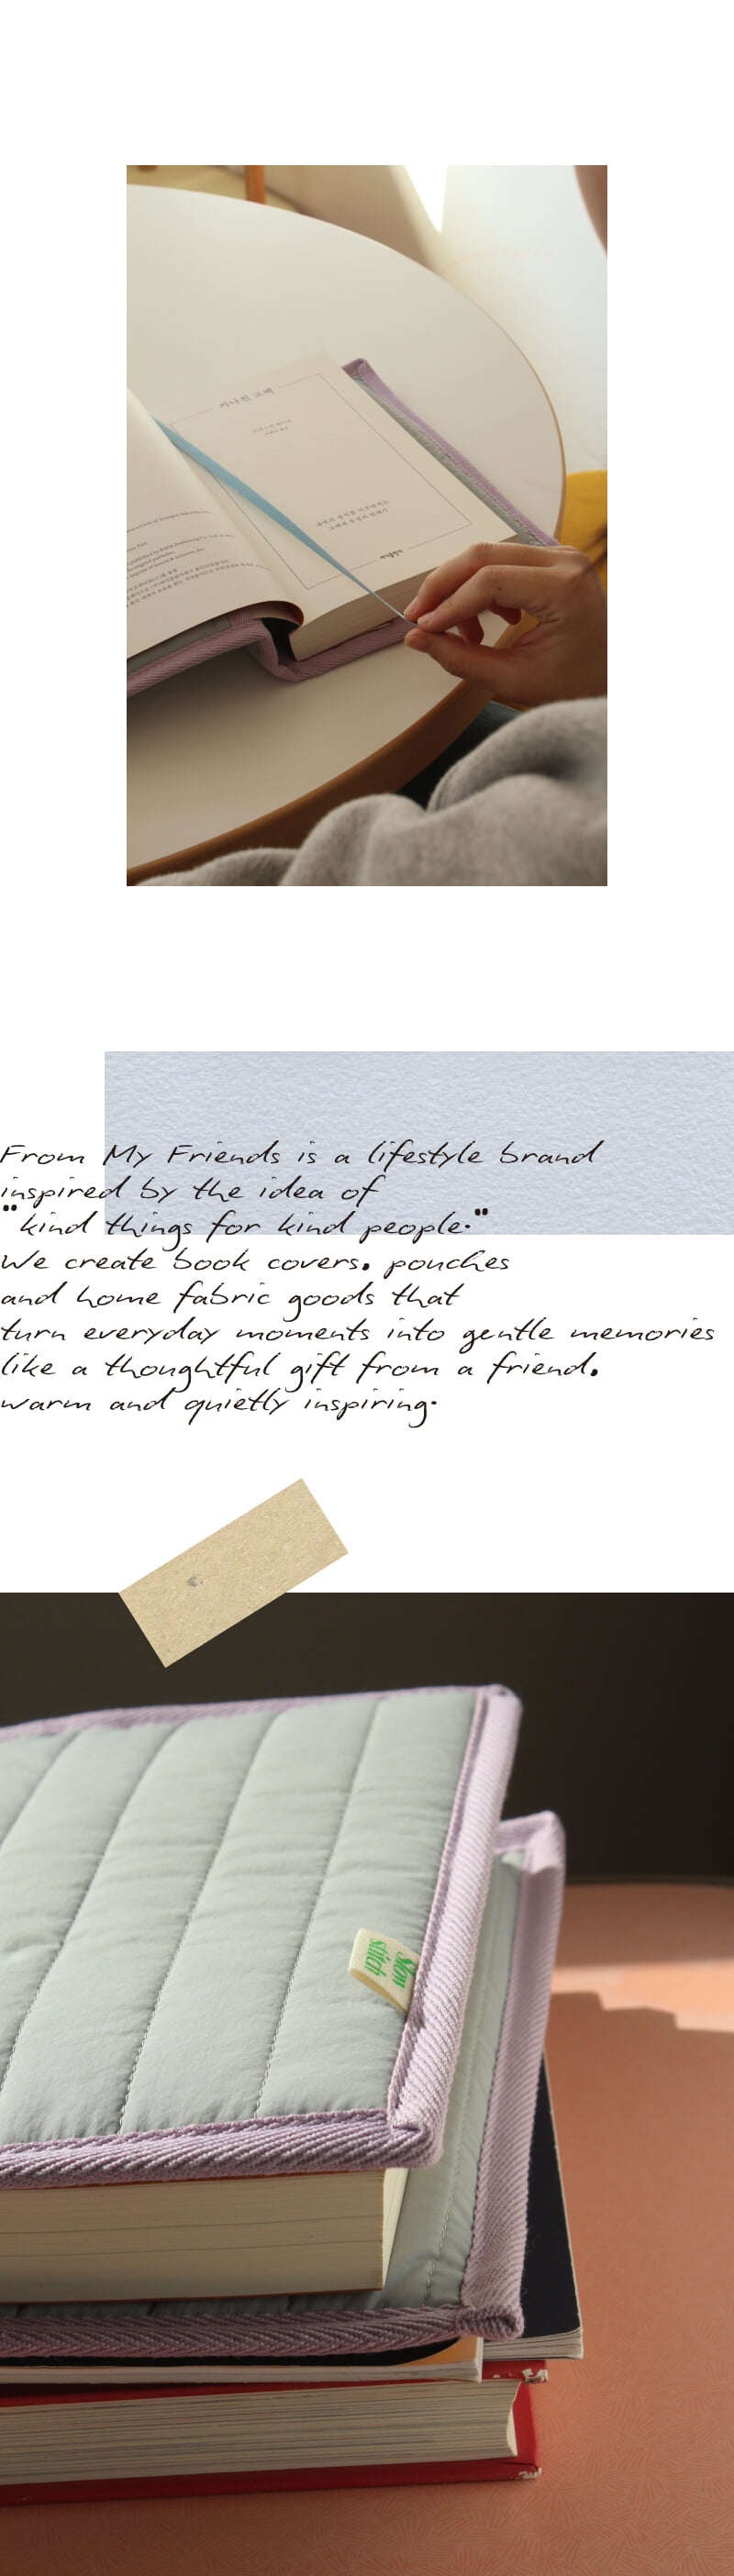 지나친 고백
From My Friends is a lifestyle brand
inspired by the idea of
"kind things for kind people."
We create book covers. pouches
and home fabric goods that
turn everyday moments into gentle memories
like a thoughtful gift from a friend.
warm and quietly inspiring.
Slow
stitch